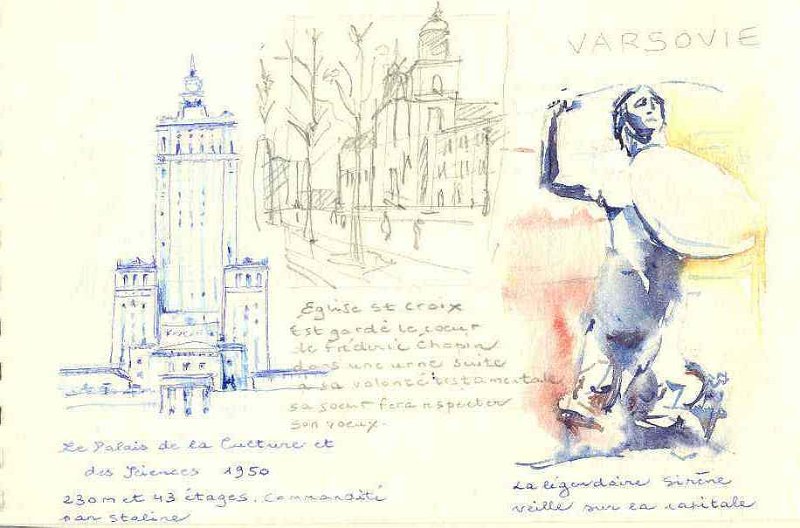 VARSOVIE
Eglise St Croix
Est gardé le coeur
de Frédéric Chopin
dans une urne suite
a sa volonté testamentale
sa soeur fera respecter
son voeux.
Le Palais de la Culture et
des Sciences 1950
230m et 43 étages. Commandité
par Staline
La légendaire Sirène
veille sur sa capitale